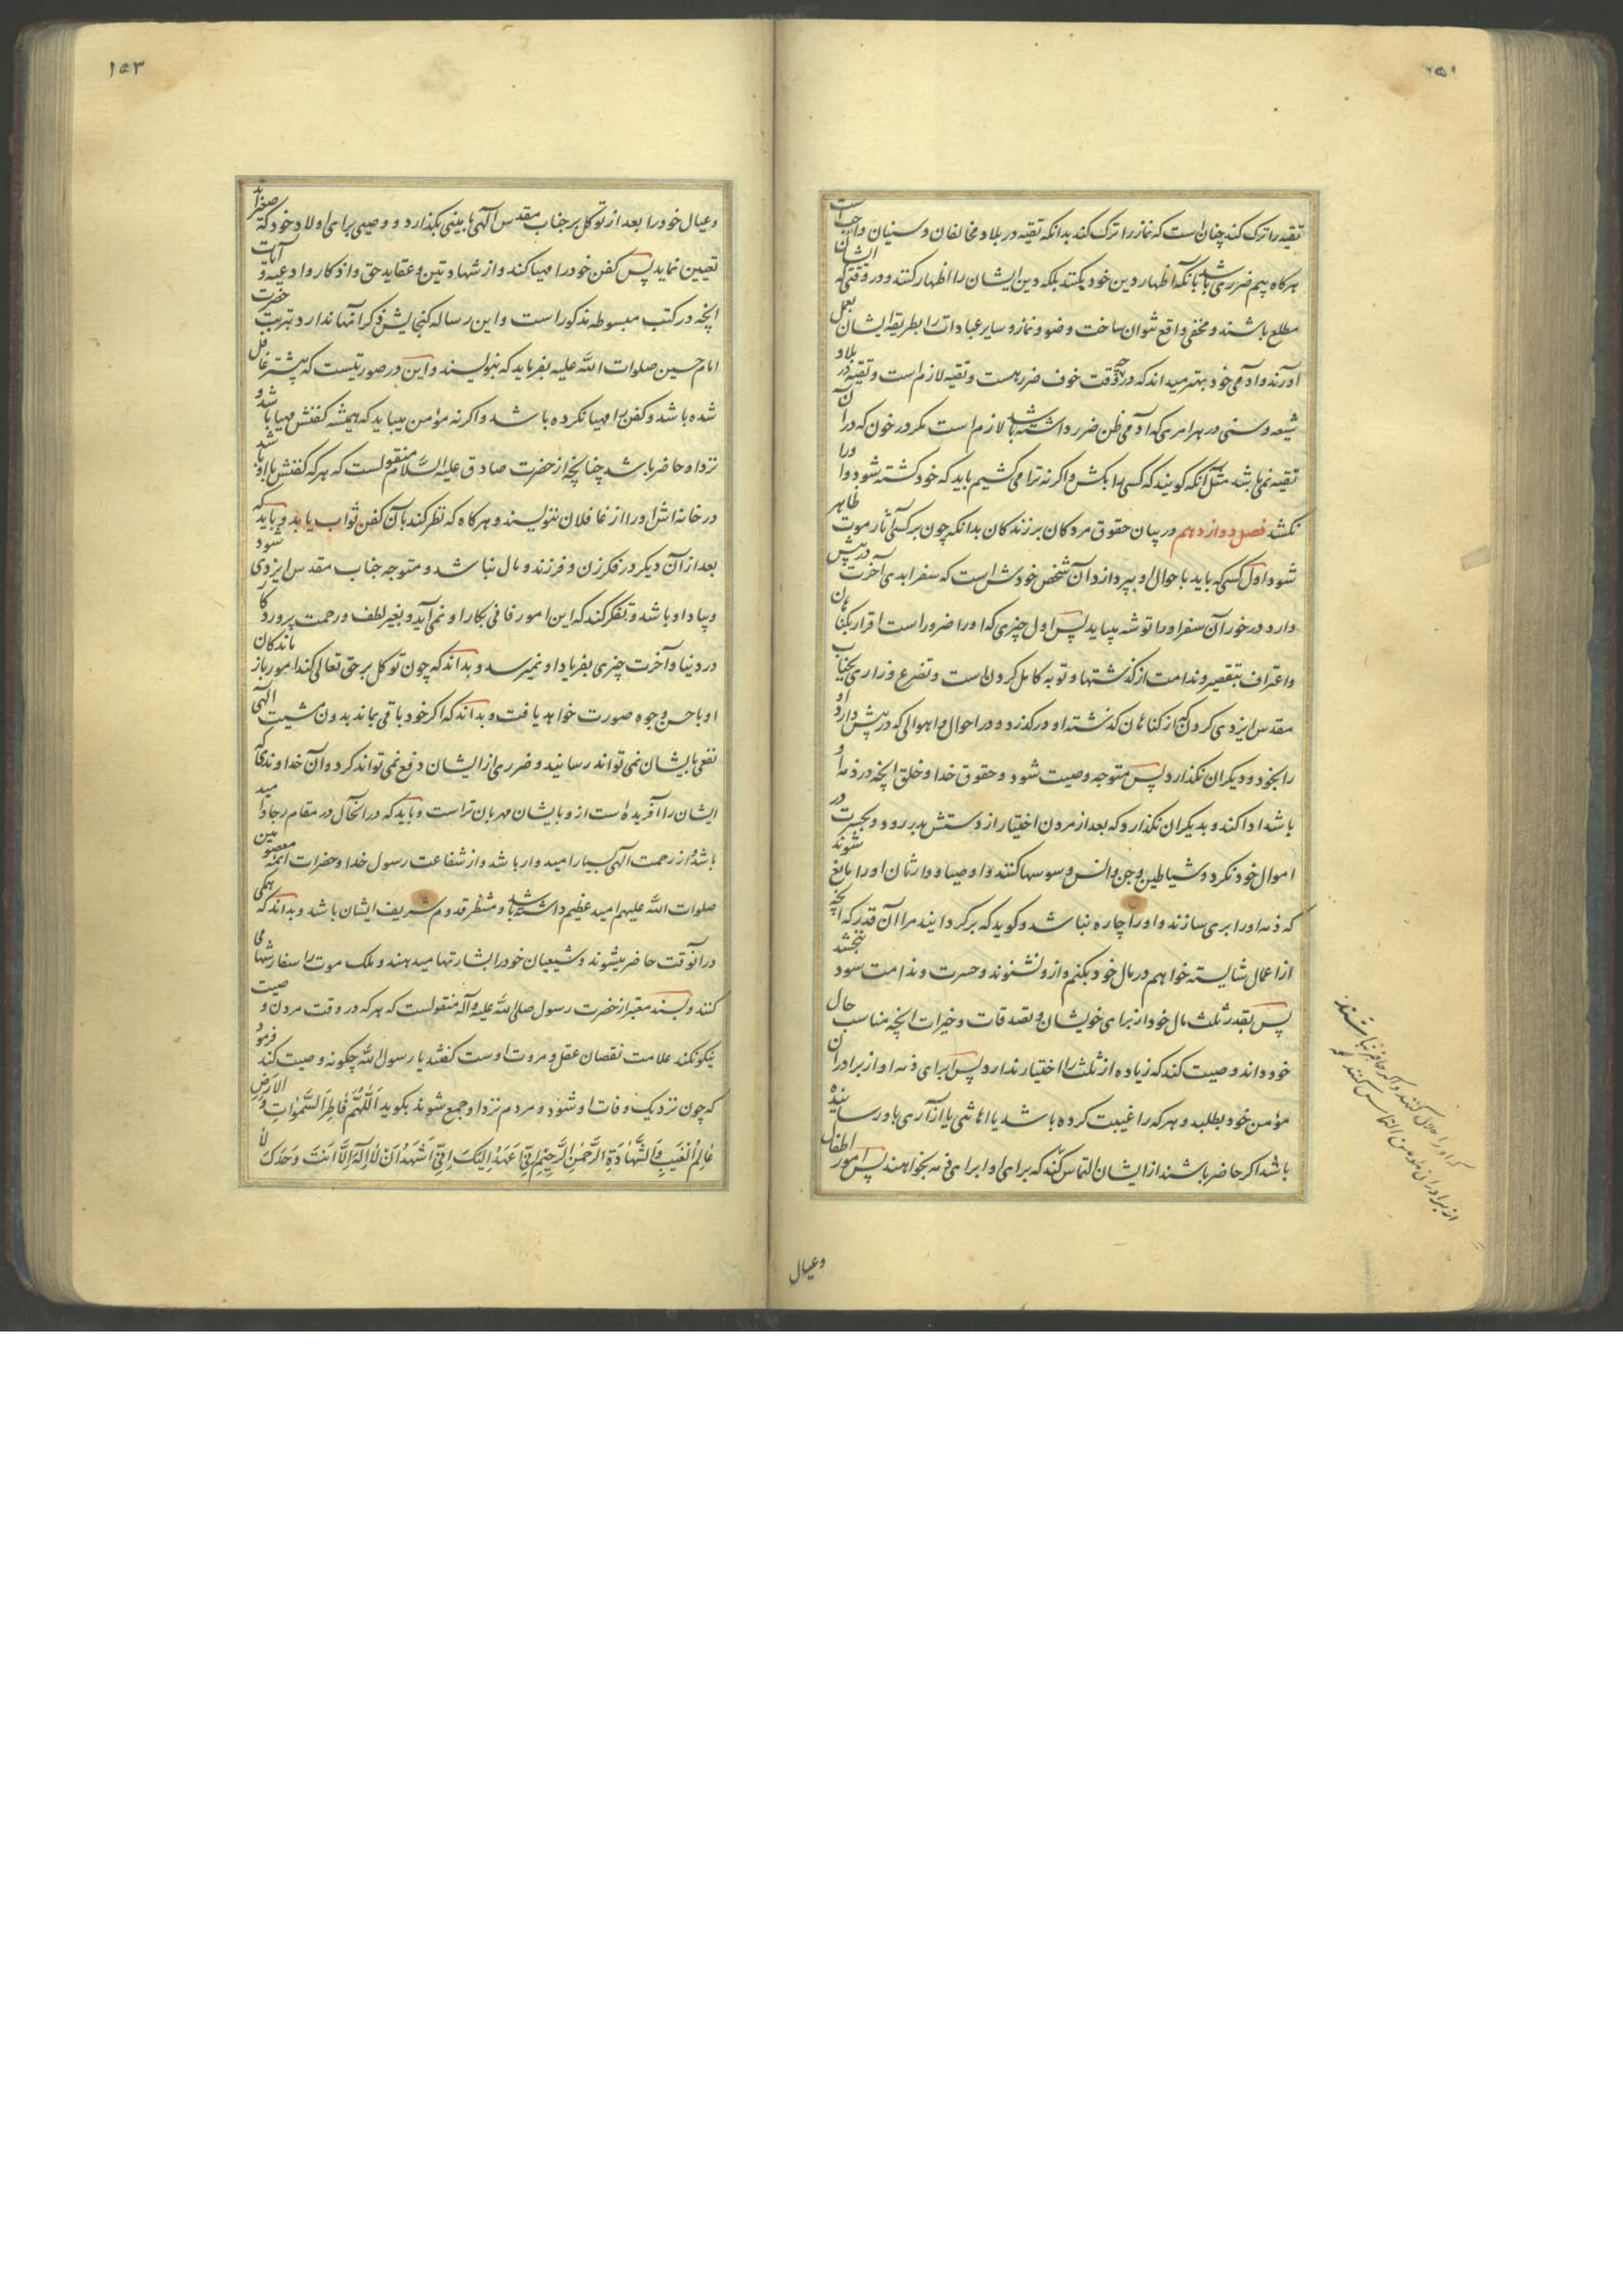 تقیه را ترک کند چنان است که نماز را ترک کند بدانکه تقیه در بلاد مخالفان و سنیان واجب است
هرگاه بیم ضرری باشد بآنکه اظهار دین خود نکنند بلکه دین ایشان را اظهار کنند و در وقتی که ایشان
مطلع باشند و مخفی واقع نتوان ساخت وضو و نماز و سایر عبادات را بطریقه ایشان بعمل
آورند و آدمی خود بهتر میداند که در چه وقت خوف ضرر هست و تقیه لازم است و تقیه در بلاد
شیعه و سنی در هر امری که آدمی ظن ضرر داشته باشد لازم است مگر در خون که در آن
تقیه نمی‌باشد مثل آنکه گویند که کسی را بکش و اگر نه ترا می‌کشیم باید که خود کشته شود و او را
نکشد فصل دوازدهم در بیان حقوق مردکان بر زندکان بدانکه چون بر کسی آثار موت ظاهر
شود اول کسی که باید باحوال او بپردازد آن شخص خودش است که سفر ابدی آخرت در پیش
دارد در خور آن سفر او را توشه میباید پس اول چیزی که او را ضرور است اقرار بکناهان
و اعتراف بتقصیر و ندامت از کذشتها و توبه کامل کردن است و تضرع و زاری بجناب
مقدس ایزدی کردن که از کناهان کذشته او درکذرد و در احوال و اهوالی که در پیش دارد او
را بخود و دیکران نکذارد پس متوجه وصیت شود و حقوق خدا و خلق آنچه در ذمه او
باشد ادا کند و بدیکران نکذارد که بعد از مردن اختیار از دستش بدر رود و بحسرت در
اموال خود نکرد و شیاطین جن و انس وسوسها کنند و اوصیا و وارثان او را مانع شوند
که ذمه او را بری سازند و او را چاره نباشد و کوید که برکردانید مرا آن قدر که آنچه
از اعمال شایسته خواهم در مال خود بکنم و از و نشنوند و حسرت و ندامت سود نبخشد
پس بقدر ثلث مال خود از برای خویشان و تصدقات و خیرات آنچه مناسب حال
خود داند وصیت کند که زیاده از ثلث را اختیار ندارد پس ابرای ذمه او از برادران
مؤمن خود بطلبد و هر که را غیبت کرده باشد یا اهانتی یا آزاری باو رسانیده
باشد اکر حاضر باشند از ایشان التماس کند که برای او ابرای ذمه بخواهند پس امور اطفال
که او را حلال کنند و اکر حاضر نباشند
از برادران مؤمن التماس کند که
و عیال
۱۵۳
و عیال خود را بعد از توکل بر جناب مقدس الهی بامینی بکذارد و وصیی برای اولاد خود که صغیراند
تعیین نماید پس کفن خود را مهیا کند و از شهادتین و عقاید حق و اذکار و ادعیه و آیات
آنچه در کتب مبسوطه مذکور است و این رساله کنجایش ذکر آنها ندارد بتربت حضرت
امام حسین صلوات الله علیه بفرماید که بنویسند و این در صورتیست که پیشتر غافل
شده باشد و کفن را مهیا نکرده باشد و اکر نه مؤمن میباید که همیشه کفنش مهیا باشد و
نزد او حاضر باشد چنانچه از حضرت صادق علیه السلام منقولست که هر که کفنش با او باشد
در خانه اش او را از غافلان ننویسند و هرکاه که نظر کند بآن کفن ثواب یابد و باید که
بعد از آن دیکر در فکر زن و فرزند و مال نباشد و متوجه جناب مقدس ایزدی شود
و بیاد او باشد و تفکر کند که این امور فانی بکار او نمی‌آید و بغیر لطف و رحمت پروردکار
در دنیا و آخرت چیزی بفریاد او نمیرسد و بداند که چون توکل بر حق تعالی کند امور بازماندکان
او باحسن وجوه صورت خواهد یافت و بداند که اکر خود باقی بماند بدون مشیت الهی
نفعی بایشان نمی‌تواند رسانید و ضرری از ایشان دفع نمی‌تواند کرد و آن خداوندی که
ایشان را آفریده است از و بایشان مهربان تر است و باید که در انحال در مقام رجا و امید
باشد و از رحمت الهی بسیار امیدوار باشد و از شفاعت رسول خدا و حضرات ائمه معصومین
صلوات الله علیهم امید عظیم داشته باشد و منتظر قدوم شریف ایشان باشد و بداند که همکی
در آنوقت حاضر میشوند و شیعیان خود را بشارتها میدهند و ملک موت را سفارشها می
کنند و بسند معتبر از حضرت رسول صلی الله علیه و آله منقولست که هر که در وقت مردن وصیت
نیکو نکند علامت نقصان عقل و مروت اوست کفتند یا رسول الله چکونه وصیت کند فرمود
که چون نزدیک وفات او شود و مردم نزد او جمع شوند بکوید اَللّهُمَّ فاطِرَ السَّمواتِ وَ الاَرضِ
عالِمَ الغَیبِ وَ الشَّهادَةِ الرَّحمنَ الرَّحیمَ اِنّی اَعهَدُ اِلَیکَ اِنّی اَشهَدُ اَن لا اِلهَ اِلّا اَنتَ وَحدَکَ لا